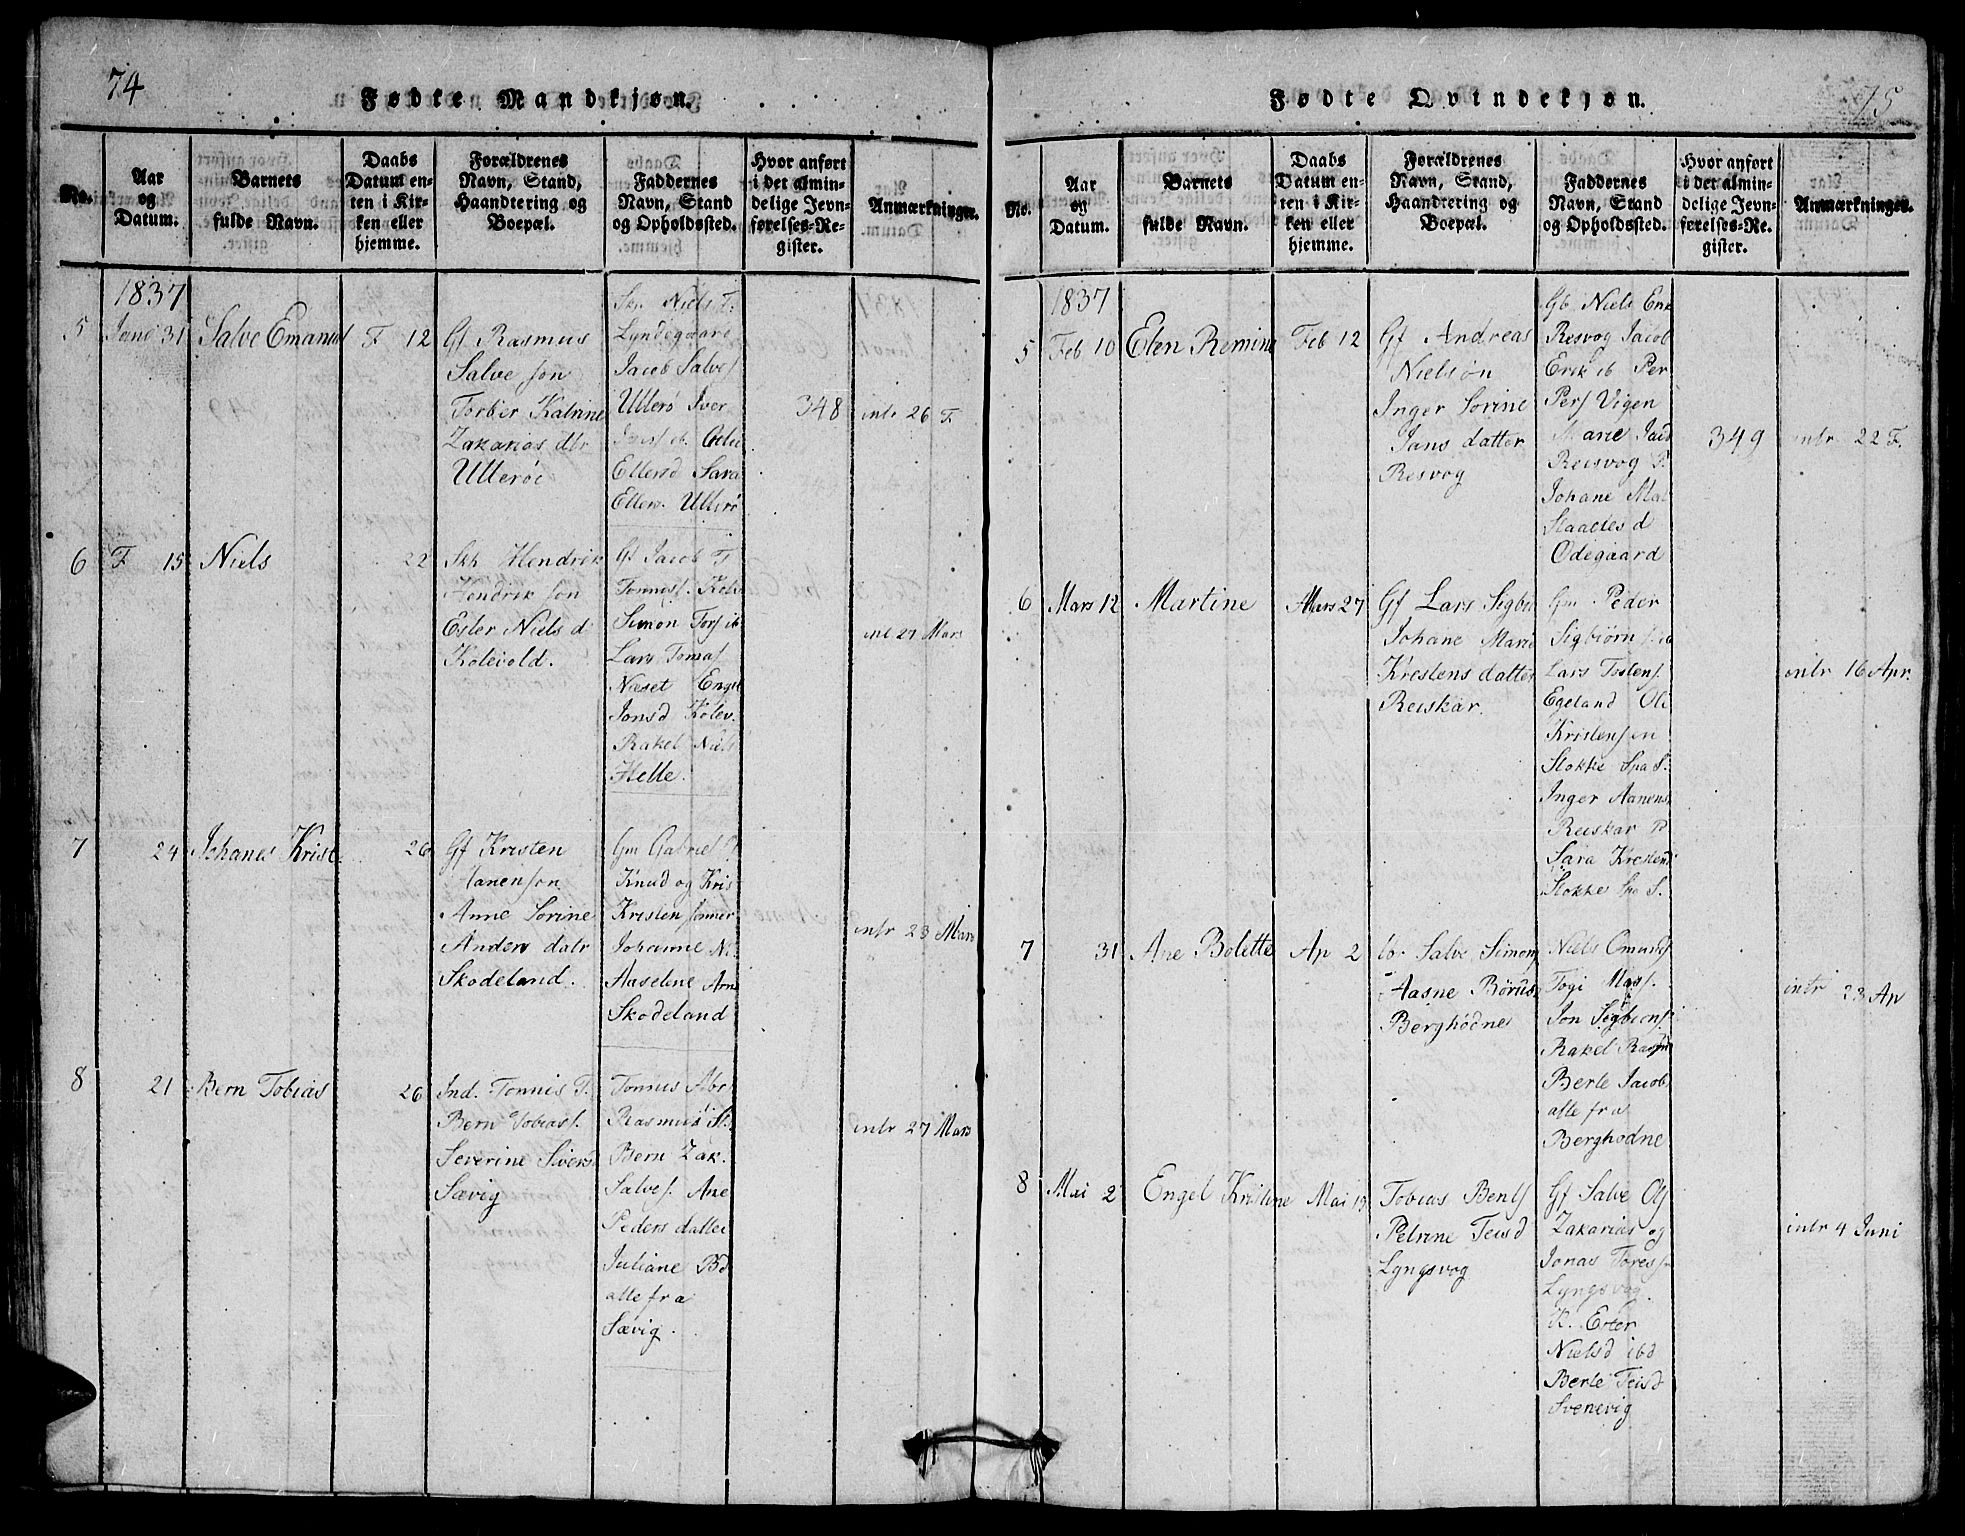 74
Fødte Mandkjøn.
No.
Aar
og
Datum.
Barnets
fulde Navn.
Daabs
Datum en-
ten i Kir-
ken eller
hjemme.
Forældrenes
Navn, Stand,
Haandtering og
Boepæl.
Faddernes
Navn, Stand
og Opholdssted.
Hvor anført
i det almin-
delige Jevn-
førelses-Re-
gister.
Anmærkninger.
1837
5
Janu 31
Salve Emanuel
F 12
Gf Rasmus
Salve søn
Torber Katrine
Zakarias dtr
Ulleröe
Niels F.
Lyndegaard
Jacob Salves
Ullerö Iver
Ellersd Sara
Ellers. Ullerö
348
intr 26 F.
6
F 15
Niels
22
Hendrik
Hendrik søn
Ester Niels d
Kolevold.
Gf Jacob F
Tønnes. Kolev
Simon Tors ib
Lars Tomas
Næset Engel
Jonsd Kolev.
Rakel Niels
Helle.
int 27 Mars
7
24
Johanes Krist
26
Gf Kristen
Aanensøn
Anne Sorine
Anders datr
Skodeland.
Gm Gabriel
Knud og Kris
Kristen sønner
Johanne Ni
Aaselene Arne
Skodeland
intr 23 Mars
8
21
Bern Tobias
26
Ind. Tønnis T.
Bern Tobias.
Severine Sivers
Sævig
Tønnes Abr
Rasmus S.
Bern Zak.
Salves. Ane
Peders datter
Juliane Bd
alle fra
Sævig.
intr 27 Mars
75
Fødte Qvindekjøn.
No.
Aar
og
Datum.
Barnets
fulde Navn.
Daabs
Datum en-
ten i Kir-
ken eller
hjemme.
Forældrenes
Navn, Stand,
Haandtering og
Boepæl.
Faddernes
Navn, Stand
og Opholdssted.
Hvor anført
i det almin-
delige Jevn-
førelses-Re-
gister.
Anmærkninger.
1837
5
Feb 10
Elen Remine
Feb 12
Gf Andreas
Nielsøn
Inger Sorine
Jans datter
Resvog
Gb Niels Erik
Resvog Jacob
Erik ib Per
Pers Vigen
Marie Jacd
Reisvog P.
Johane Mal
Staalesd
Ødegaard
349
intr 22 F.
6
Mars 12
Martine
Mars 27
Gf Lars Sigbi
Johane Marie
Krestens datter
Reiskar.
Gm Peder
Sigbiörn s ib
Lars Tostens.
Egeland Ole
Kristensen
Stokke Spa S.
Inger Aanens
Reiskar P
Sara Krestend
Stokke Spa S.
intr 16 Apr.
7
31
Ane Bolette
Ap 2
Salve Simons
Aasne Börus
Berghødne
Niels Omunds
Togi Mass.
Jon Sigbiøns.
Rakel Rasm
Berte Jacobs
alle fra
Berghodne
intr 23 Ap
8
Mai 2
Engel Kristine
Mai 19
Tobias Bents
Petrine Teisd
Lyngsvog
Gf Salve Ols
Zakarias og
Jonas Toressn
Lyngsvog.
K. Ester
Nielsd ibd
Berte Teisd
Svenevig
intr 4 Juni